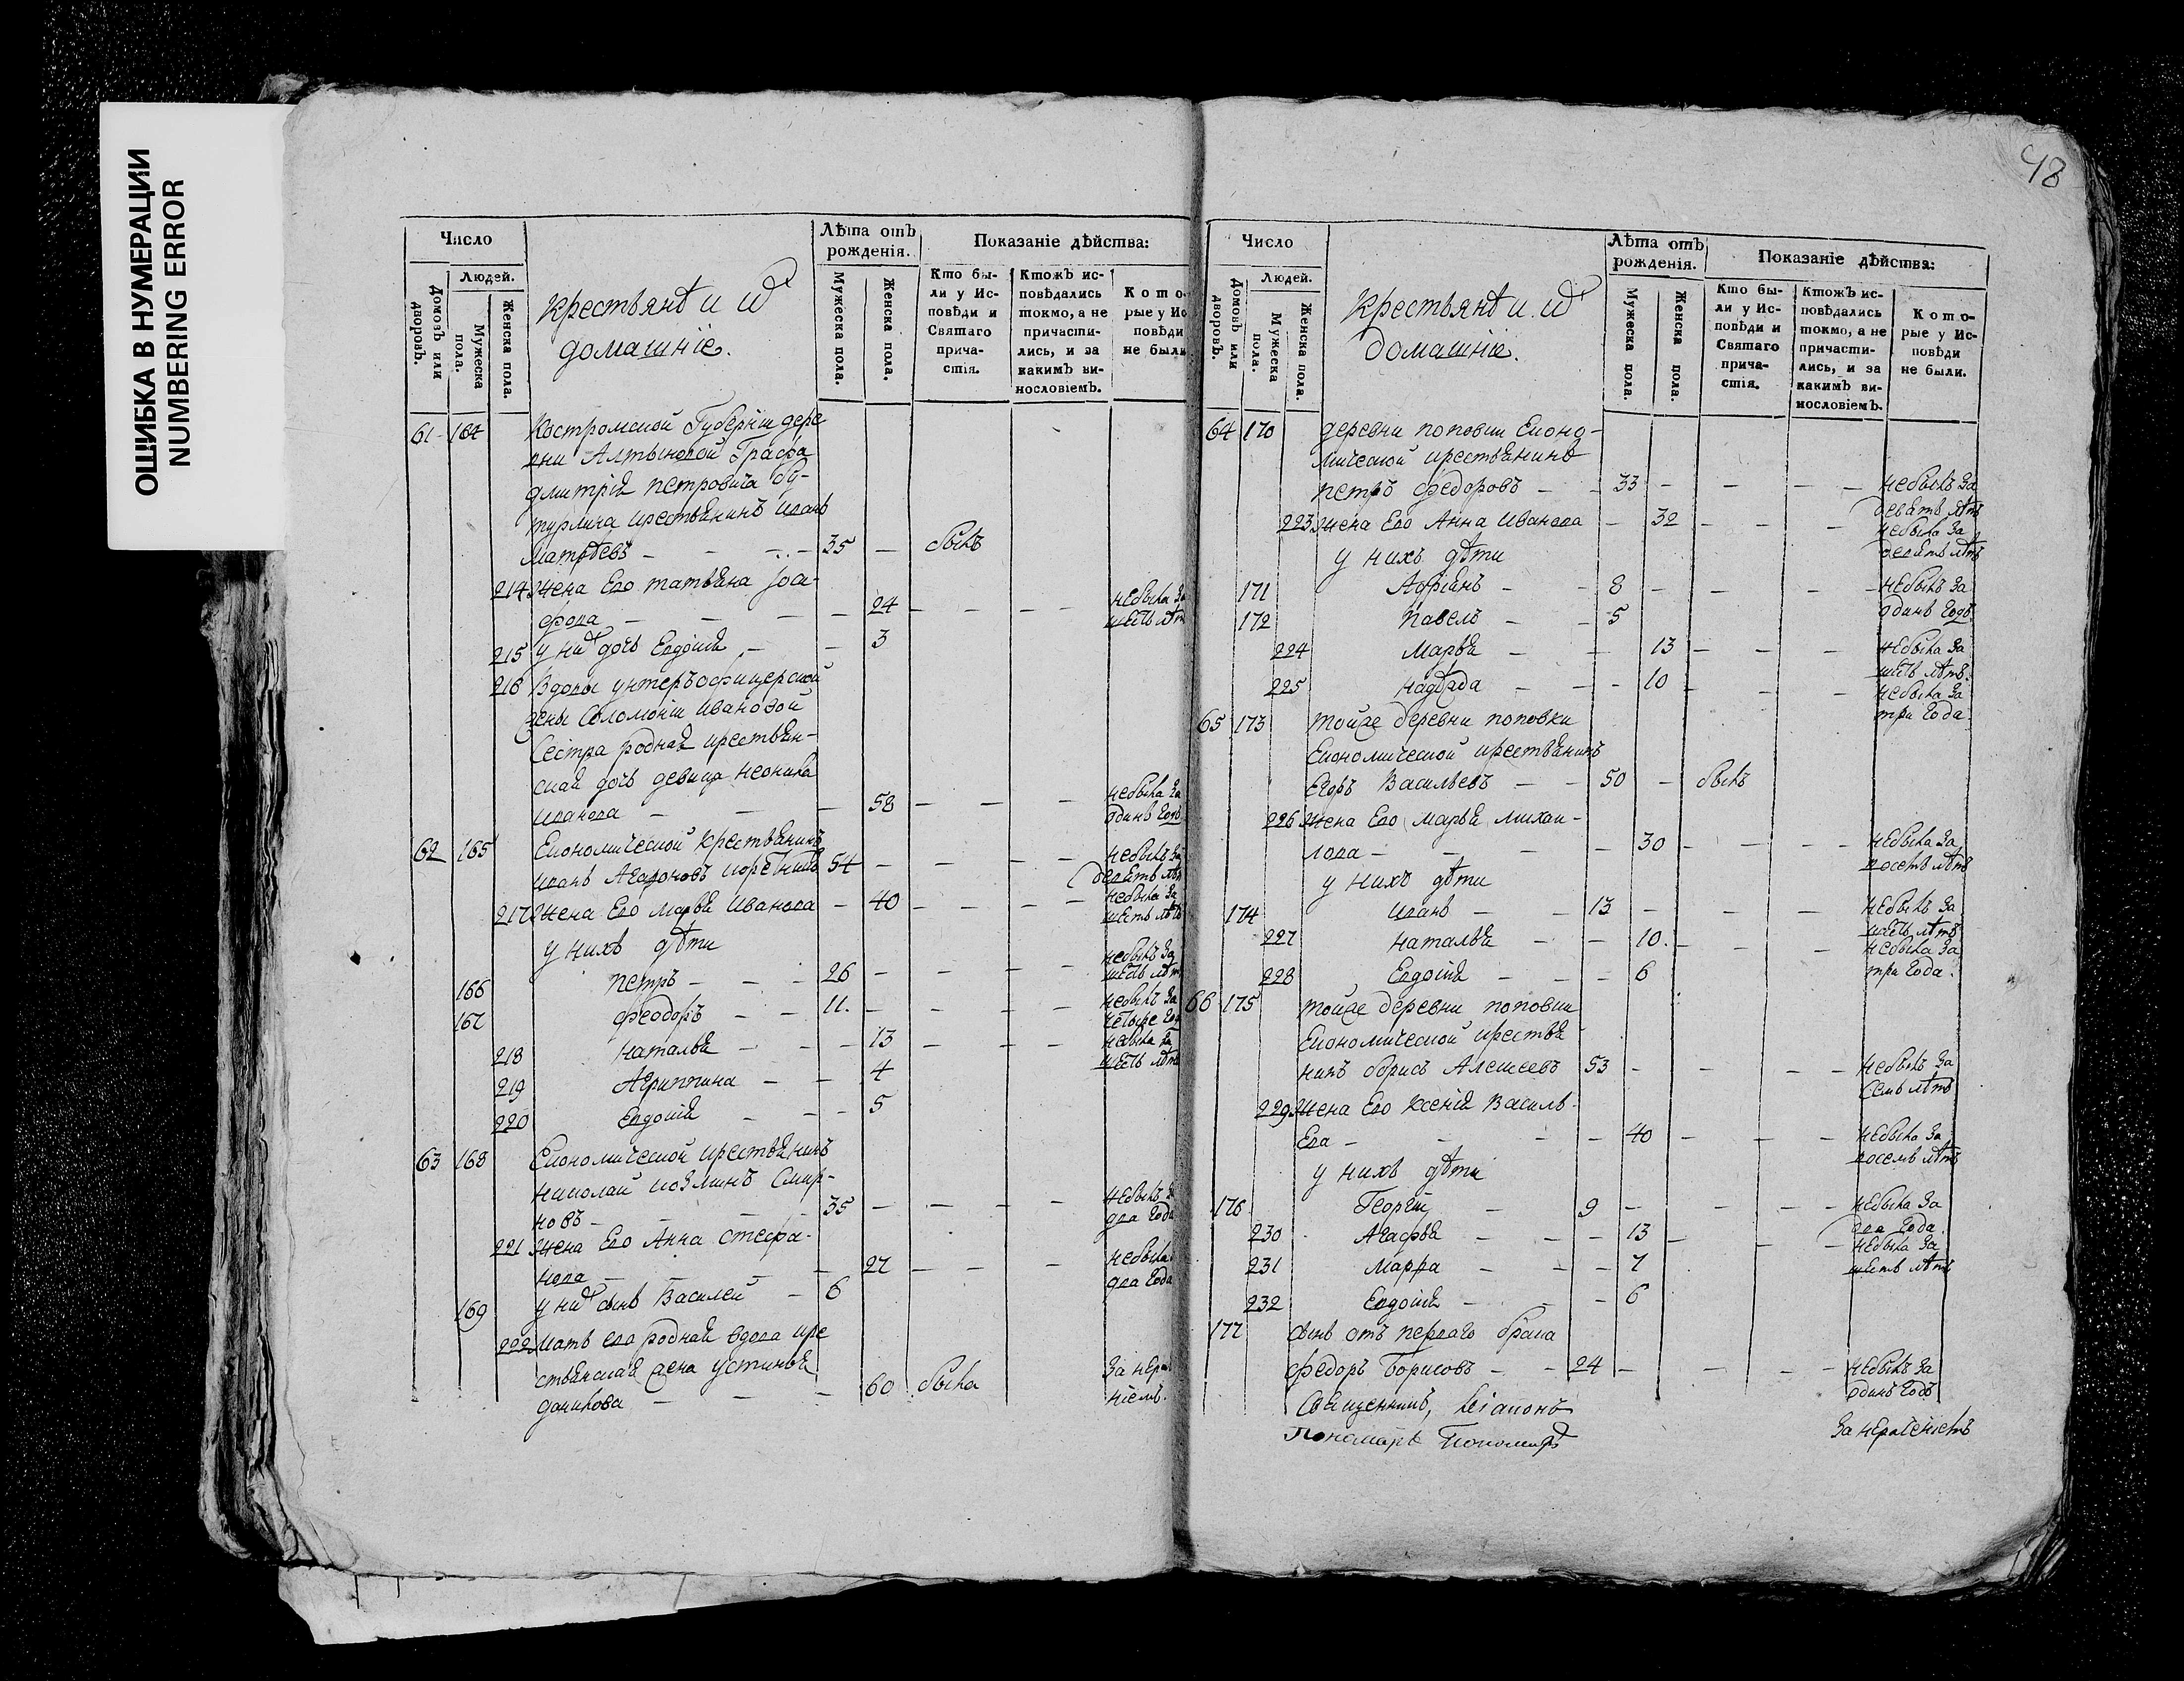 ОШИБКА В НУМЕРАЦИИ
NUMBERING ERROR
48
Число
Людей.
Домовъ или дворовъ.
Мужеска пола.
Женска пола.
крестьянѣ и их
домашніе.
Лѣта отъ рожденія.
Мужеска пола.
Женска пола.
Показаніе дѣйства:
Кто были у Исповѣди и Святаго причастія.
Ктожъ исповѣдались токмо, а не причастились, и за какимъ винословіемъ.
Которые у Исповѣди не были
61 164 Костромской Губерніи дере
вни Алтыновой Графа
дмитрія петровича бу-
турлина крестьянинъ иванъ
Матвѣевъ - - - 35 - былъ
214 Жена Его татьяна
- - - - 24 - - - - небыла за
шесть лѣтъ
215 у них дочь Евдокія - - 3
216 Вдовы унтеръофицерской
жены Соломоніи ивановой
Сестра родная крестьян-
ская дочь девица неонила
иванова - - - 58 - - - небыла за
одинъ годъ
62 165 Економической крестьянинъ
иванъ Агафоновъ 54 - - - - небылъ за
девять лѣтъ
217 Жена Его марья Иванова - 40 - - - - небыла за
шесть лѣтъ
у нихъ дѣти
166 петръ - - - 26 - - - - небылъ за
шесть лѣтъ
167 феодоръ - - 11. - - - - небылъ за
четыре года
218 наталья - - - 13 - - - небыла за
шесть лѣтъ
219 Агриппина - - 4
220 Евдокія - - - 5
63 168 Економической крестьянинъ
николай козминъ Смир-
новъ - - - 35 - - - - небылъ за
два года
221 Жена Его Анна Стефа-
нова - - - - 27 - - - небыла
два года
169 у них сынъ Василей - 6
222 Мать его родная вдова кре
стьянская жена устинья
данилова - - - 60 былa за нера
ніемъ.
Число
Людей.
Домовъ или дворовъ.
Мужеска пола.
Женска пола.
крестьянѣ и их
домашніе.
Лѣта отъ рожденія.
Мужеска пола.
Женска пола.
Показаніе дѣйства:
Кто были у Исповѣди и Святаго причастія.
Ктожъ исповѣдались токмо, а не причастились, и за какимъ винословіемъ.
Которые у Исповѣди не были.
64 170 деревни поповки Еконо-
мической крестьянинъ
петръ федоровъ - - 33 - - - - небылъ за
девять лѣтъ
223 жена Его Анна Иванова - 32 - - - небыла за
девять лѣтъ
у нихъ дѣти
171 Адріанъ - - 8 - - - - небылъ за
одинъ годъ
172 павелъ - - 5
224 Марья - - 13 - - - небыла за
шесть лѣтъ.
225 надежда - - - 10 - - - небыла за
три года.
65 173 тойже деревни поповки
Економической крестьянинъ
Егоръ Васильевъ - - 50 - былъ
226 Жена Его марья михаи-
лова - - - - 30 - - - - небыла за
восемь лѣтъ
у нихъ дѣти
174 иванъ - - 13 - - - небылъ за
шесть лѣтъ
227 наталья - - 10. - - - небыла за
три года.
228 Евдокія - - - 6
66 175 тойже деревни поповки
Економической крестья
нинъ борисъ Алексеевъ 53 - - - - небылъ за
семь лѣтъ
229 Жена Его ксенія Василь
Ева - - - - 40 - - - небыла за
восемь лѣтъ
у нихъ дѣти
176 Георгій - 9 - - - - небылa за
два года.
230 Агафья - - - 13 - - - небыла за
шесть лѣтъ
231 Марфа - - - 7
232 Евдокія - - 6
177 сынъ отъ перваго брака
федоръ Борисовъ - - 24 - - - - небылъ за
одинъ годъ
Священникъ,
Пономарь
За